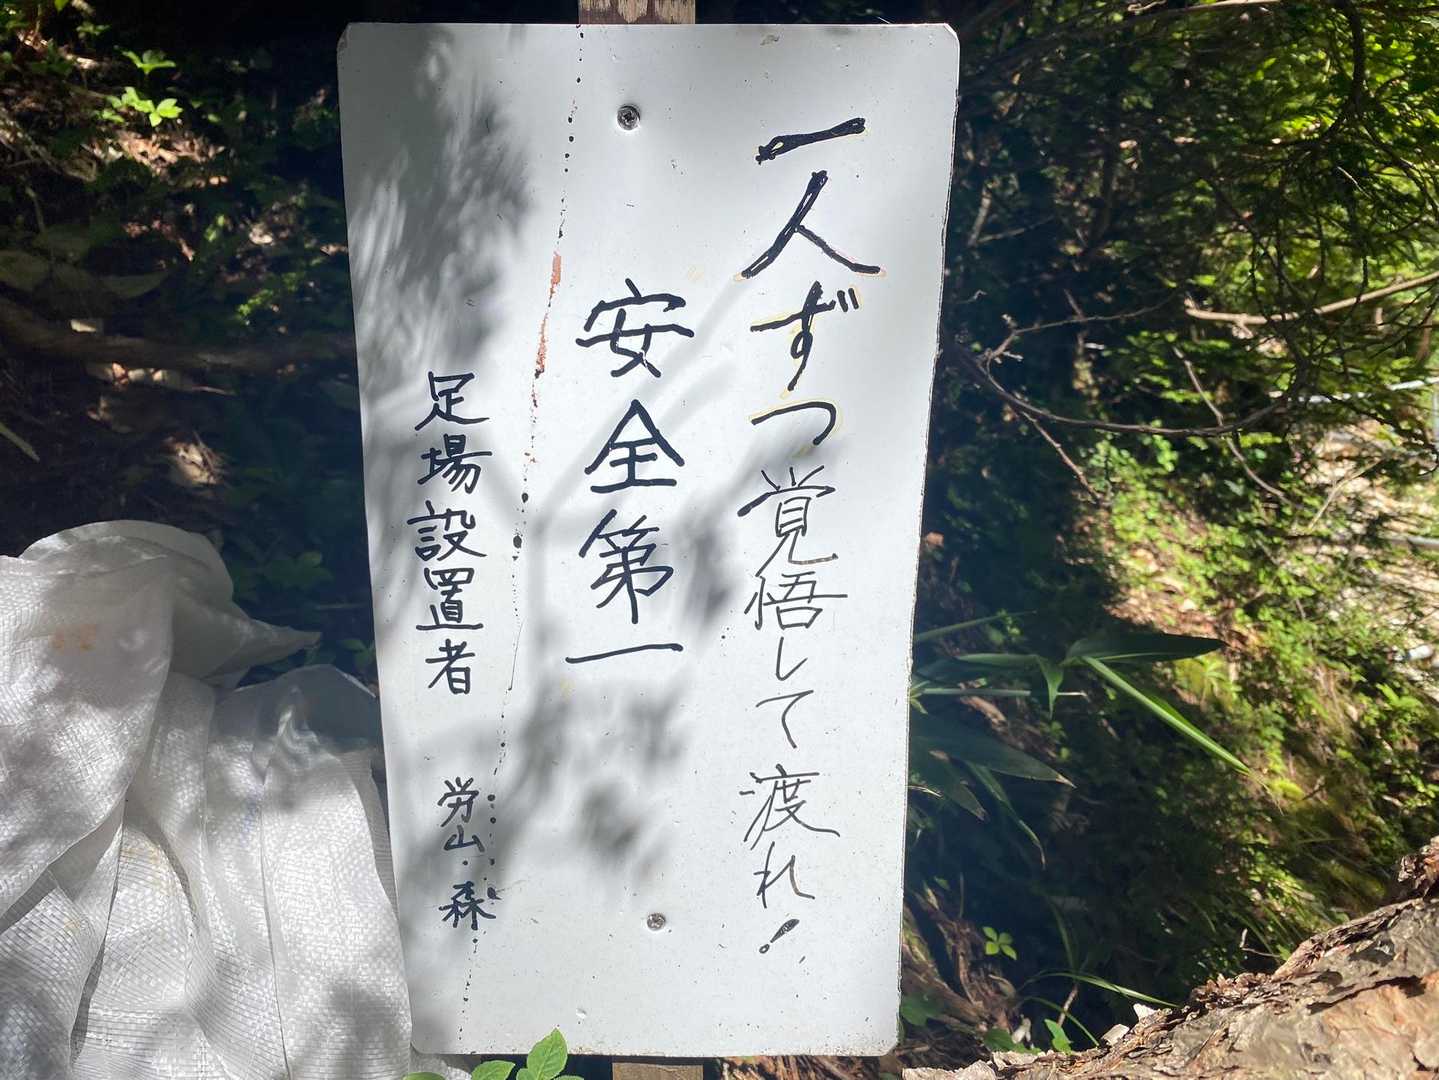 一人ずつ覚悟して渡れ！
安全第一
足場設置者　労山・森